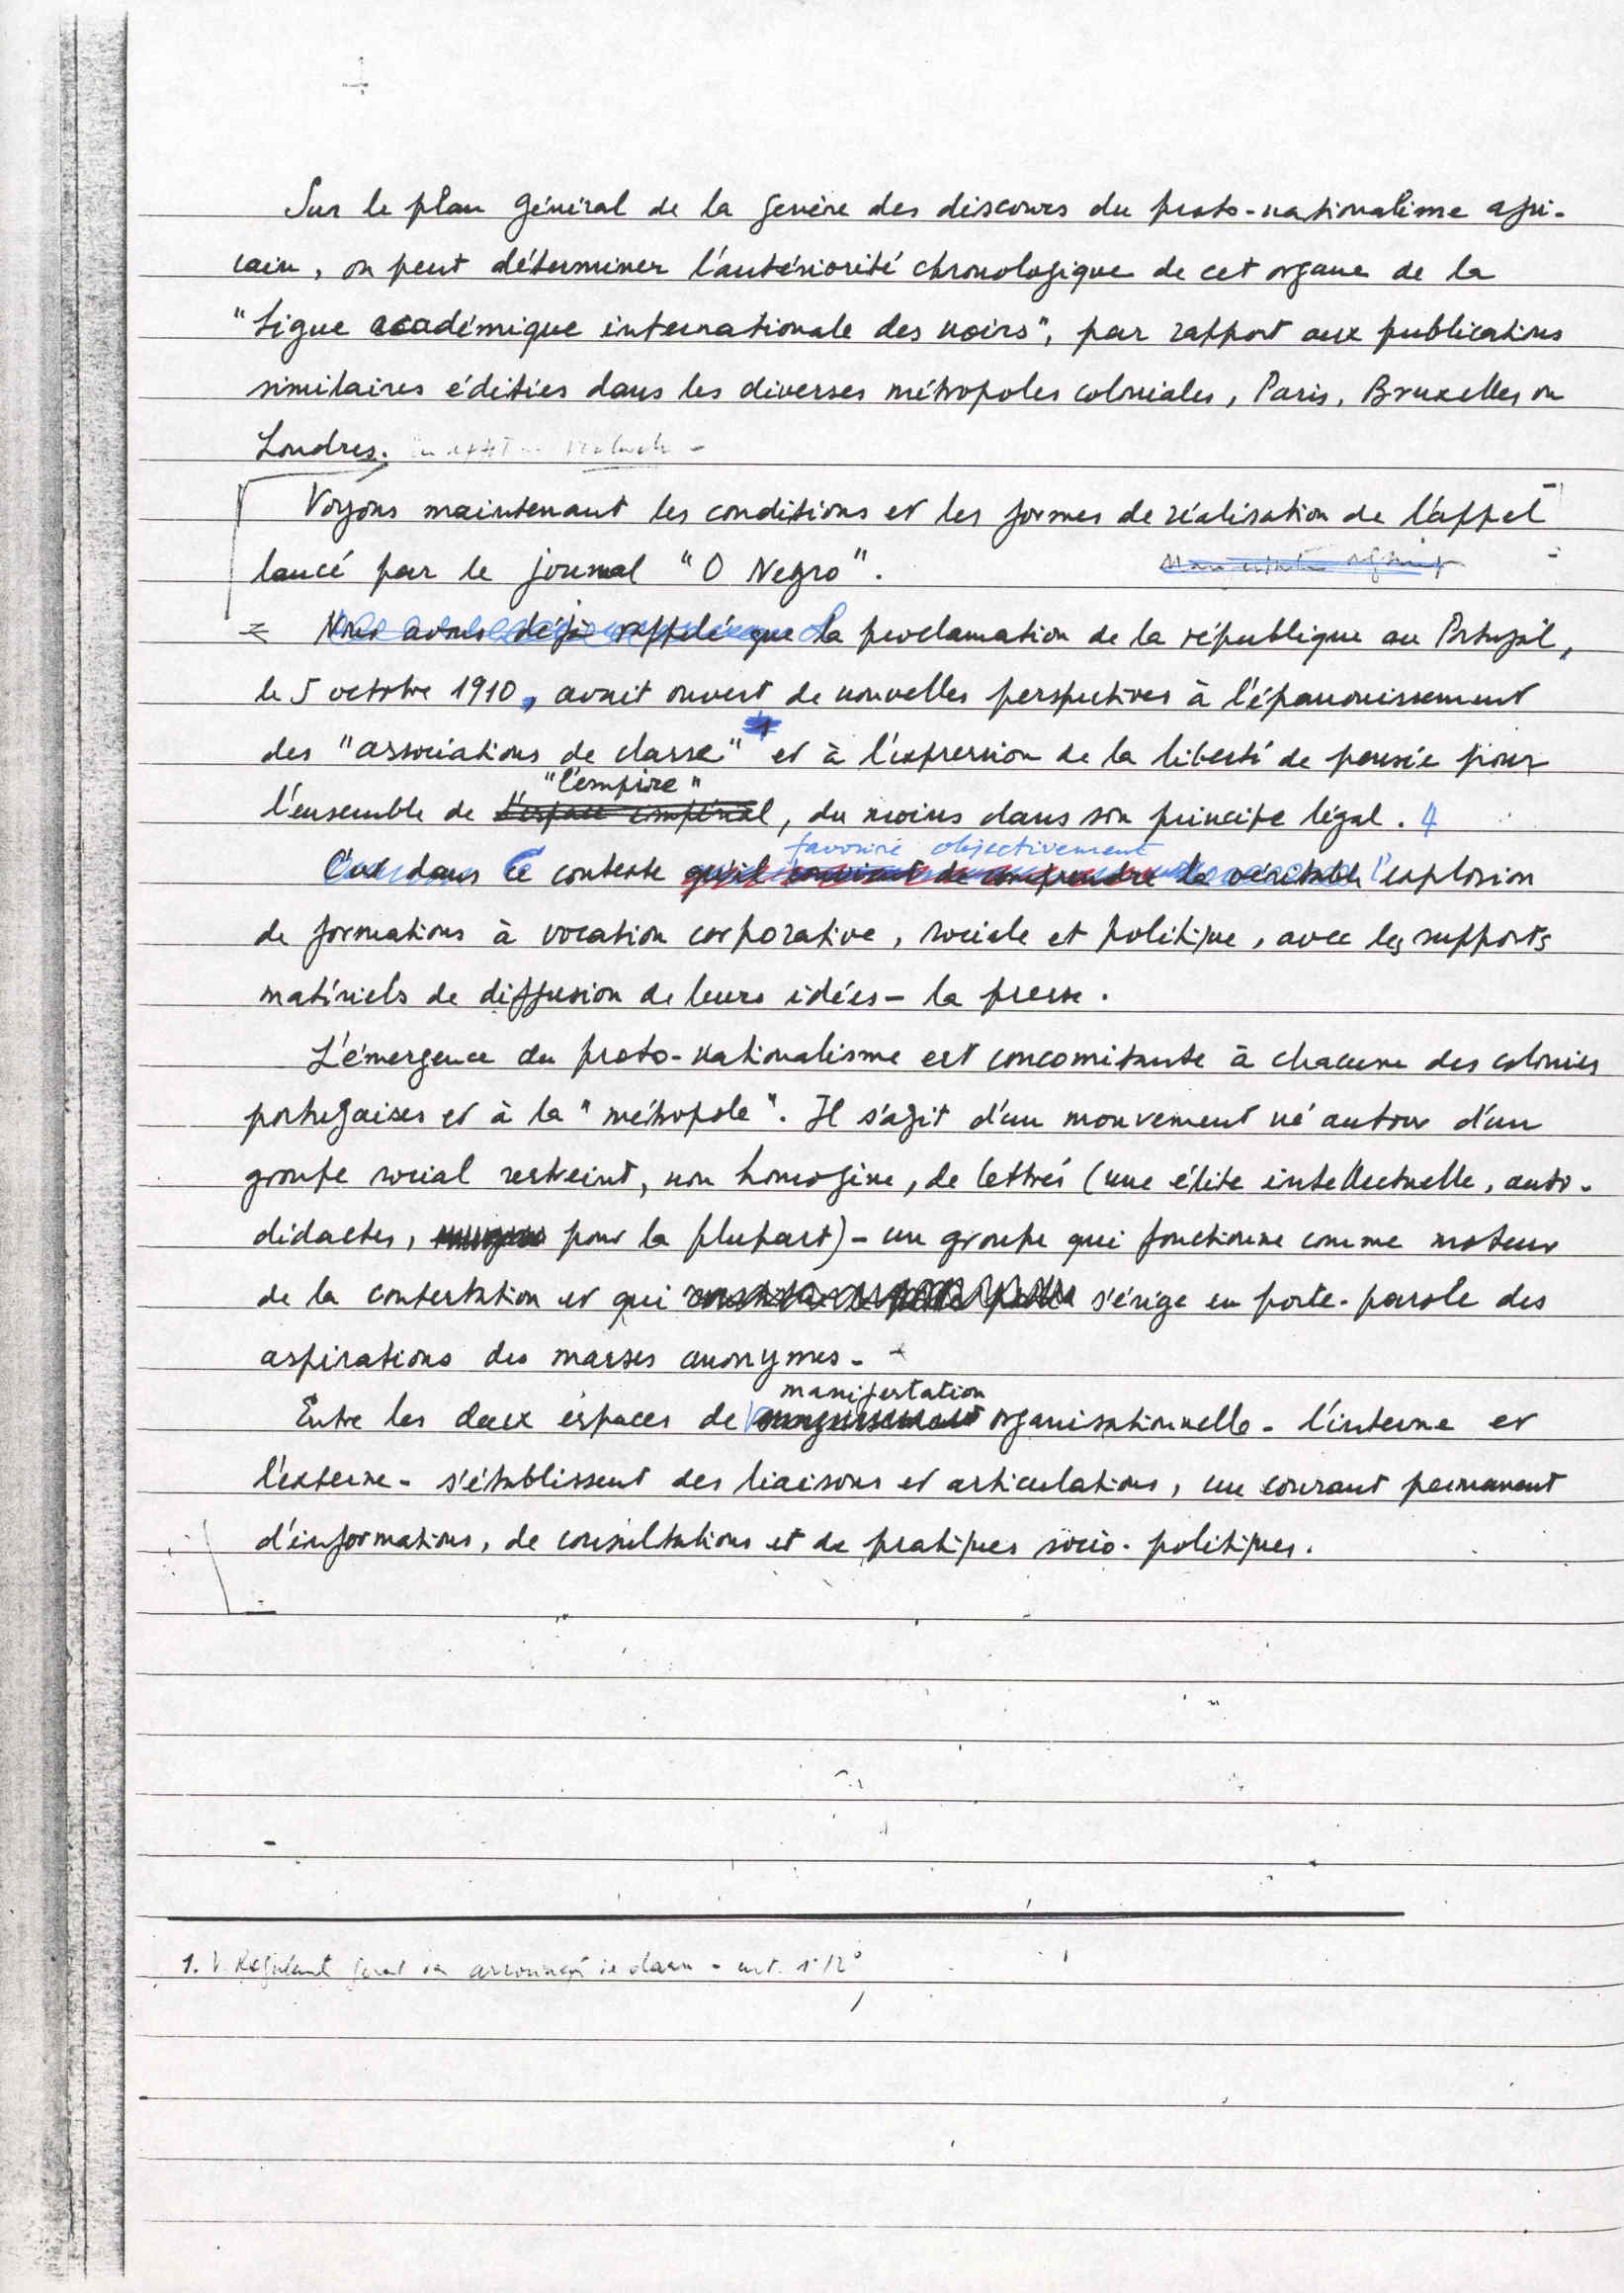 Sur le plan général de la genèse des discours du proto-nationalisme afri-
cain, on peut déterminer l'antériorité chronologique de cet organe de la
"Ligue académique internationale des noirs", par rapport aux publications
similaires éditées dans les diverses métropoles coloniales, Paris, Bruxelles ou
Londres.
Voyons maintenant les conditions et les formes de réalisation de l'appel
lancé par le journal "O Negro".
Nous avons déjà rappelé que la proclamation de la république au Portugal,
le 5 octobre 1910, avait ouvert de nouvelles perspectives à l'épanouissement
des "associations de classe" 1 et à l'expression de la liberté de pensée pour
"l'empire"
l'ensemble de l'espace impérial, du moins dans son principe légal. 4
favorisé objectivement
C'est dans ce contexte qu'il convient de comprendre la véritable l'explosion
de formations à vocation corporative, sociale et politique, avec les supports
matériels de diffusion de leurs idées - la presse.
L'émergence du proto-nationalisme est concomitante à chacune des colonies
portugaises et à la "métropole". Il s'agit d'un mouvement né autour d'un
groupe social restreint, non homogène, de lettrés (une élite intellectuelle, auto-
didactes, pour la plupart) - un groupe qui fonctionne comme moteur
de la contestation et qui s'érige en porte-parole des
aspirations des masses anonymes.
manifestation
Entre les deux espaces de organisationnelle - l'interne et
l'externe - s'établissent des liaisons et articulations, un courant permanent
d'informations, de consultations et de pratiques socio-politiques.
1. V. art. 1º/2º